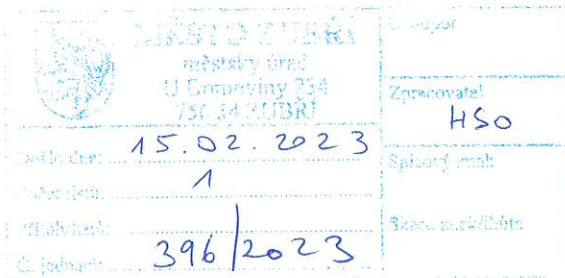 MĚSTO ZUBŘÍ
městský úřad
U Domoviny 234
756 54 ZUBŘÍ
Došlo dne: 15.02.2023
Počet listů: 1
Přílohy/listů:
Č. jednací: 396/2023
Zpracovatel
HSO
Spisový znak
Skart. znak/lhůta